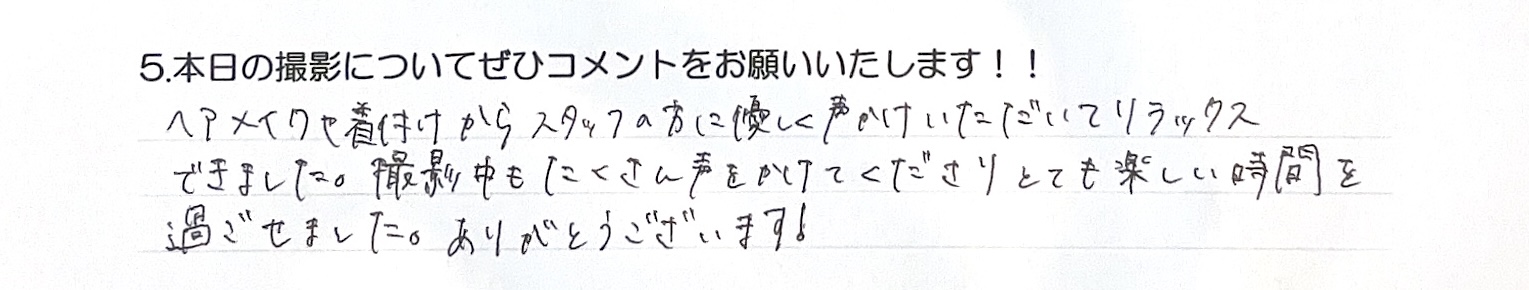 5.本日の撮影についてぜひコメントをお願いいたします！！
ヘアメイクや着付けからスタッフの方に優しく声かけいただいてリラックス
できました。撮影中もたくさん声をかけてくださりとても楽しい時間を
過ごせました。ありがとうございます!